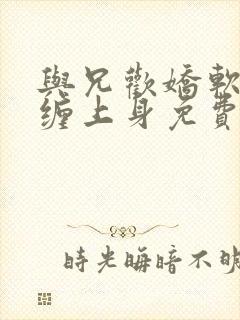 與兄歡嬌軟
纏上身免費
時光晦暗不明